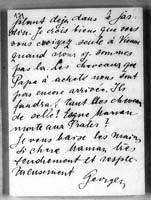 déjà dans le jar-
Je crois bien que vous
vous seule à Vienne
quand nous y sommes
pas là. Les chevaux que
Papa a acheté nous sont
pas encore arrivés. Ils
tous les chevaux
de selle!
monte aux Prater?
Je vous baise les mains
si chère Maman très
tendrement et respec-
tueusement
Georges